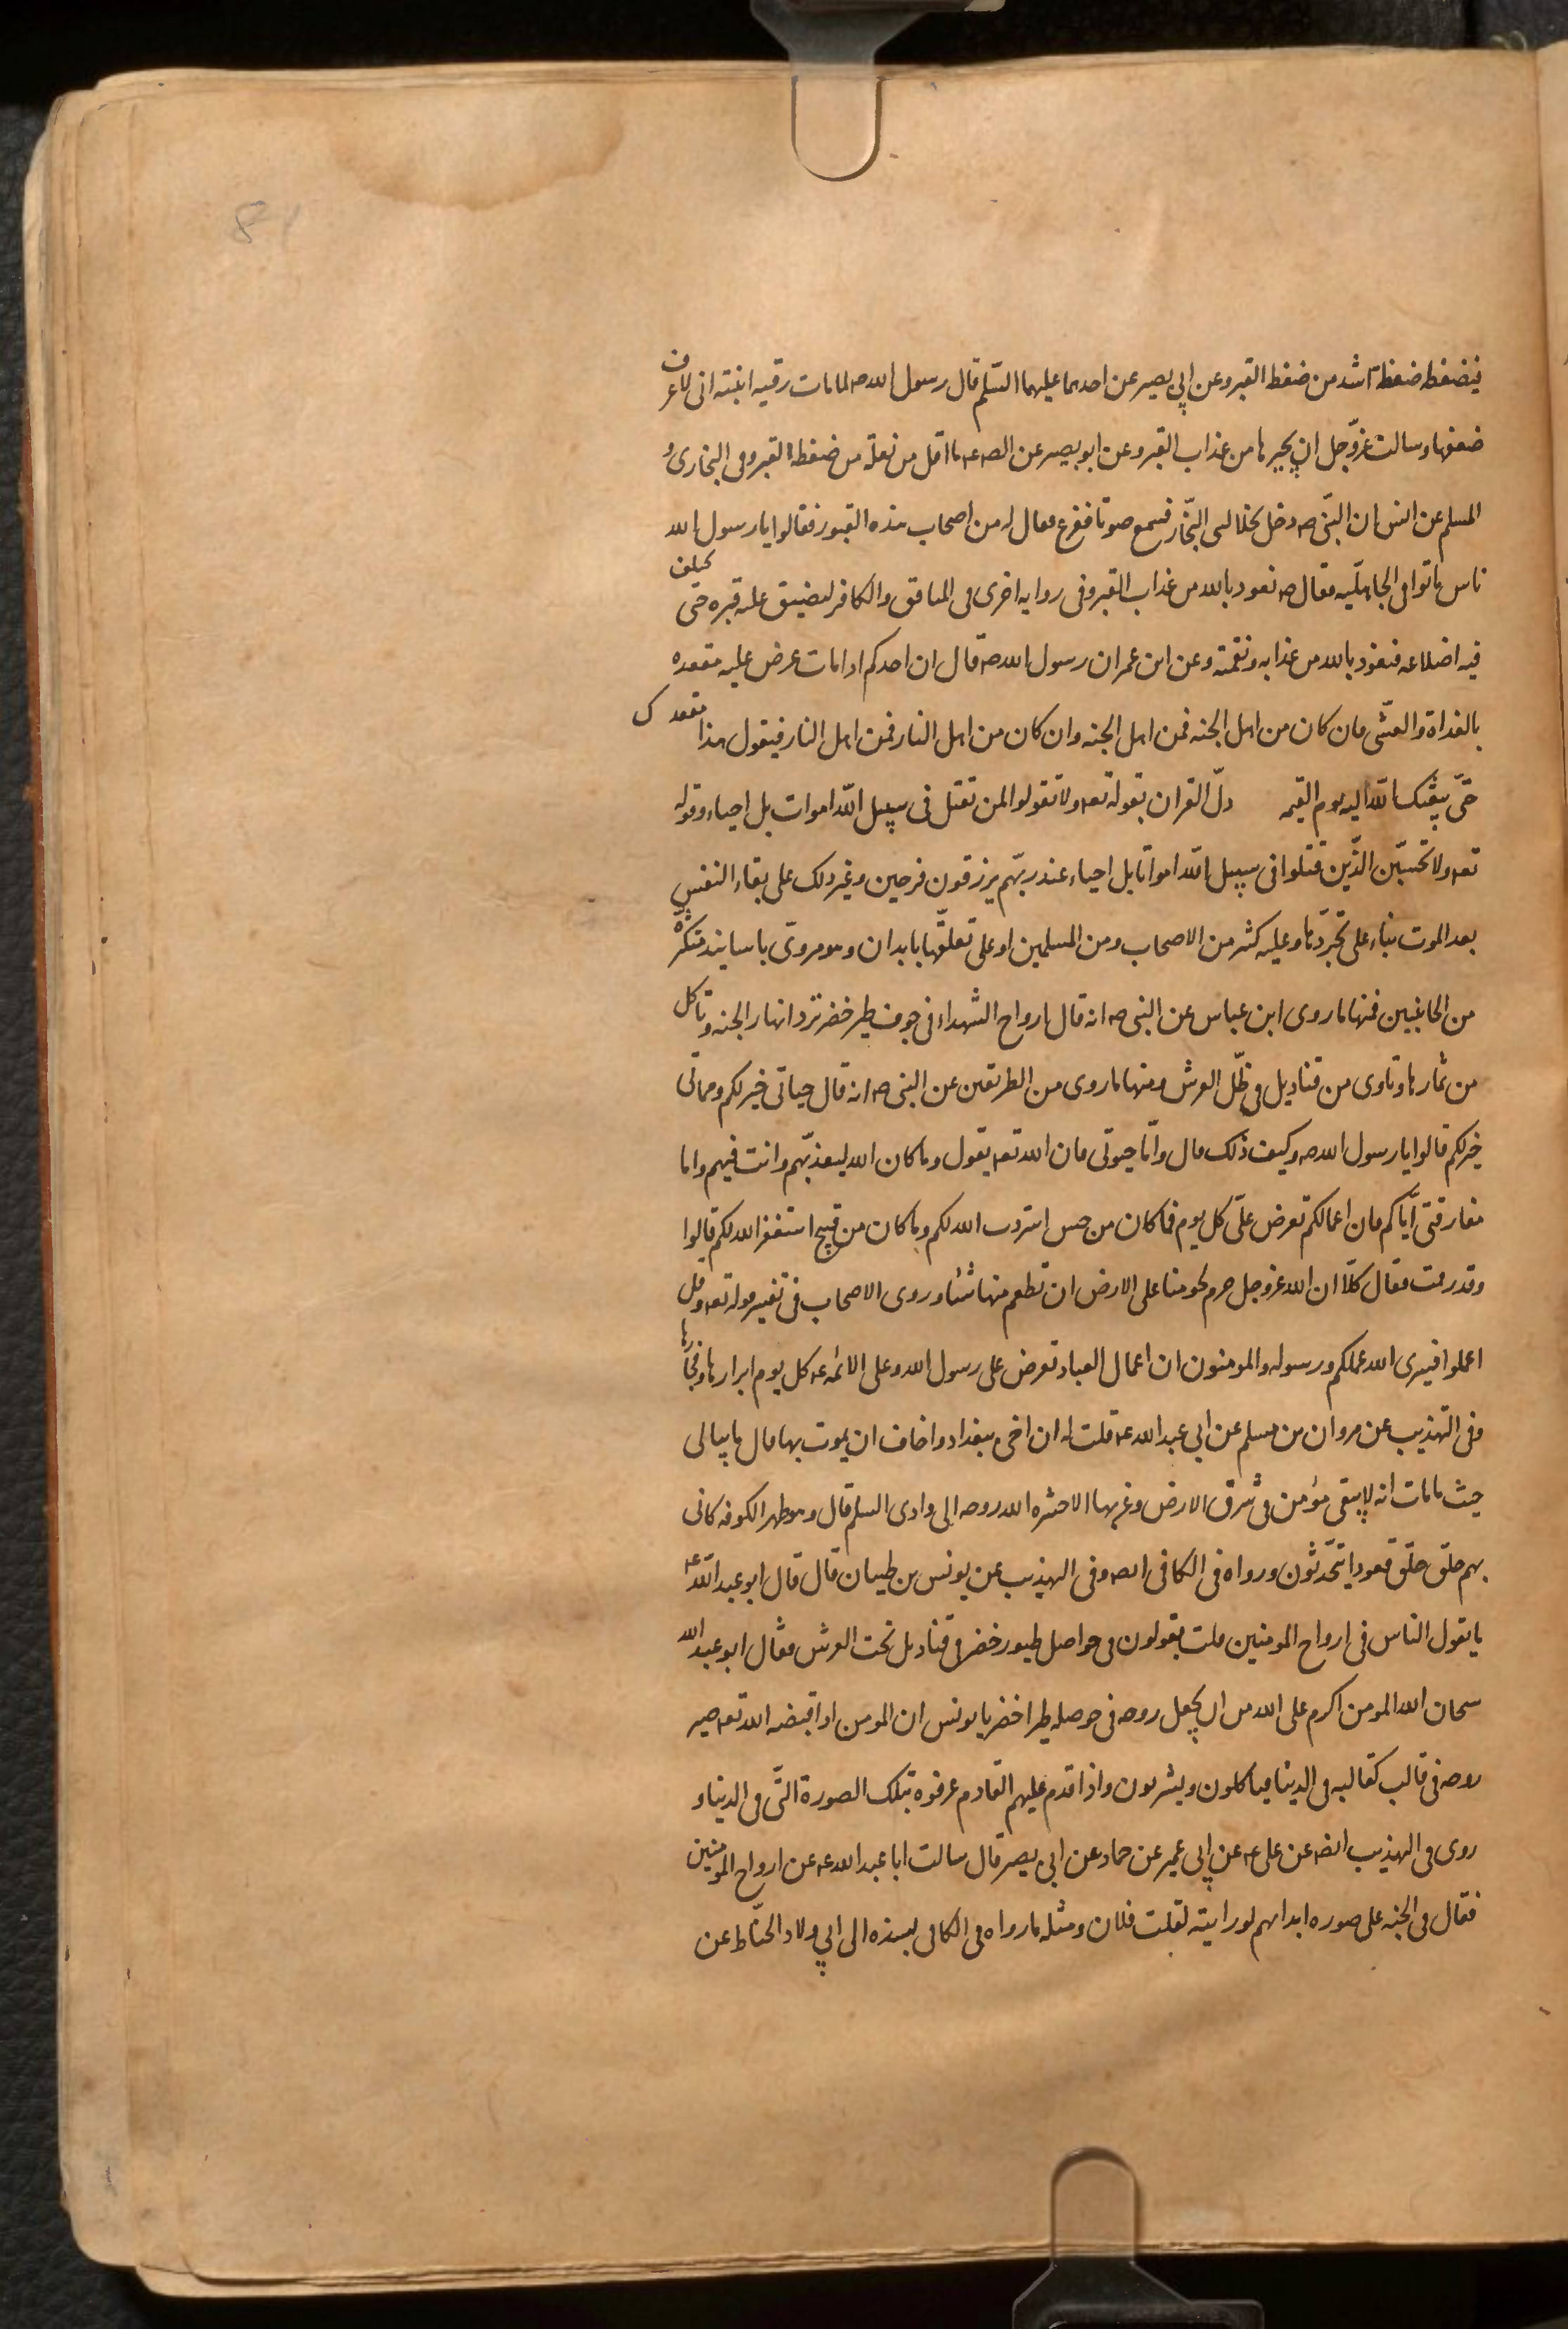 فيضغطه ضغطة اشد من ضغطة القبر وعن ابي بصير عن احدهما عليهما السّلم قال رسول الله صه لما مات رقيه ابنته انى لاعرف
ضعفها وسالت عزّوجل ان يجيرها من عذاب القبر وعن ابو بصير عن الصه عه ما اقل من نعلة من ضغطة القبر وفى البخارى و
المسلم عن انس ان النبّى صه دخل نخلا لبنى النجّار فسمع صوتا ففزع فقال له من اصحاب هذه القبور فقالوا يا رسول الله
ناس ماتوا فى الجاهليّه فقال صه نعود بالله من عذاب القبر وفى روايه اخرى فى المنافق والكافر ليضيق عليه قبره حتى تختلف
فيه اضلاعه فنعوذ بالله من عذابه ونقمته وعن ابن عمر ان رسول الله صه قال ان احدكم ادا مات عرض عليه مقعده
بالغداة والعشّى فان كان من اهل الجنه فمن اهل الجنه وان كان من اهل النار فمن اهل النار فيقول هذا مقعدك
حتّى يبعثك الله اليه يوم القيمه دلّ القران بقوله تعه ولا تقولوا لمن تقتل فى سبيل الله اموات بل احياء وقوله
تعه ولا تحسبّن الذّين قتلوا فى سبيل الله امواتا بل احياء عند ربهّم يرزقون فرحين وغير دلك على بقاء النفس
بعد الموت بناء على تجرّدها وعليه كثير من الاصحاب ومن المسلمين او على تعلقّها بابدان وهو مروىّ باسانيد متكثّره
من الجانبين فمنها ما روى ابن عباس عن النبى صه انه قال ارواح الشهداء فى جوف طير خضر ترد انهار الجنه وتاكل
من ثمارها وتاوى من قناديل فى ظلّ العرش ومنها ما روى من الطريقين عن النبى صه انه قال حياتى خير لكم ومماتى
خير لكم قالوا يا رسول الله صه وكيف ذلك قال وامّا حيوتى فان الله تعه يقول وما كان الله ليعذبّهم وانت فيهم واما
مفارقتى ايّاكم فان اعمالكم تعرض علىّ كل يوم فما كان من حسن استزدت الله لكم وما كان من قبيح استغفر الله لكم قالوا
وقد رممت فقال كلّا ان الله عزوجل حرم لحومنا على الارض ان تطعم منها شئا وروى الاصحاب فى تفسير قوله تعه وقل
اعملوا فسيرى الله عملكم ورسوله والمومنون ان اعمال العباد تعرض على رسول الله وعلى الائمه عه كل يوم ابرارها وفجارها
وفى التهذيب عن مروان بن مسلم عن ابى عبد الله عه قلت له ان اخى ببغداد واخاف ان يموت بها قال ما يبالى
حيث ما مات انه لا يبقى مؤمن فى شرق الارض وغربها الا حشره الله روحه الى وادى السلم قال وهو ظهر الكوفه كانى
بهم حلق حلق قعودا يتحّدثون ورواه فى الكافى ايضه وفى التهذيب عن يونس بن ظبيان قال قال ابو عبد الله عه
ما يقول الناس فى ارواح المومنين قلت يقولون فى حواصل طيور خضر فى قناديل تحت العرش فقال ابو عبد الله
سبحان الله المومن اكرم على الله من ان يجعل روحه فى حوصله طير اخضر يا يونس ان المومن اذا قبضه الله تعه صير
روحه فى قالب كقالبه فى الدينا فيأكلون ويشربون واذا قدم عليهم القادم عرفوه بتلك الصورة التّى فى الدينا و
روى فى التهذيب ايضه عن على عه عن ابى عمير عن حماد عن ابى بصير قال سالت ابا عبد الله عه عن ارواح المومنين
فقال فى الجنه على صوره ابدانهم لو رايته لقلت فلان ومثله ما رواه فى الكافى بسنده الى ابى ولاد الحنّاط عن